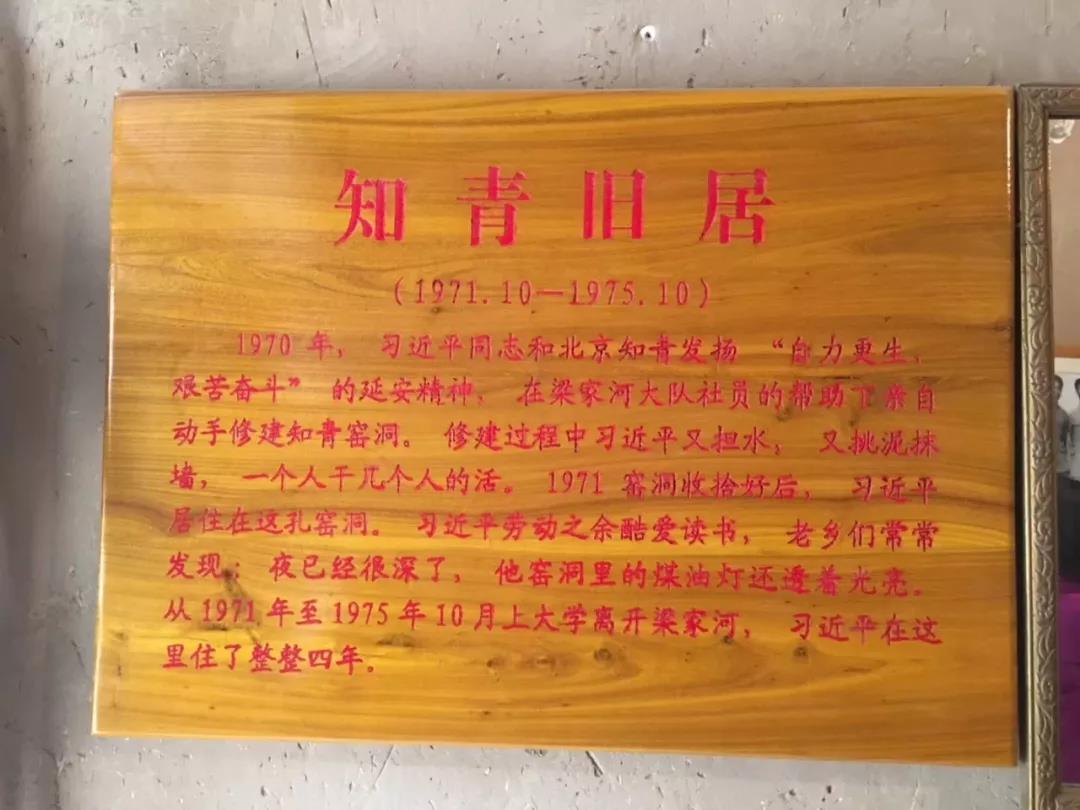 知青旧居
（1971.10—1975.10）
1970 年， 习近平同志和北京知青发扬 “自力更生、
艰苦奋斗” 的延安精神， 在梁家河大队社员的帮助下亲自
动手修建知青窑洞。 修建过程中习近平又担水， 又挑泥抹
墙， 一个人干几个人的活。 1971 窑洞收拾好后， 习近平
居住在这孔窑洞。 习近平劳动之余酷爱读书， 老乡们常常
发现： 夜已经很深了， 他窑洞里的煤油灯还透着光亮。
从 1971 年至 1975 年 10 月上大学离开梁家河， 习近平在这
里住了整整四年。